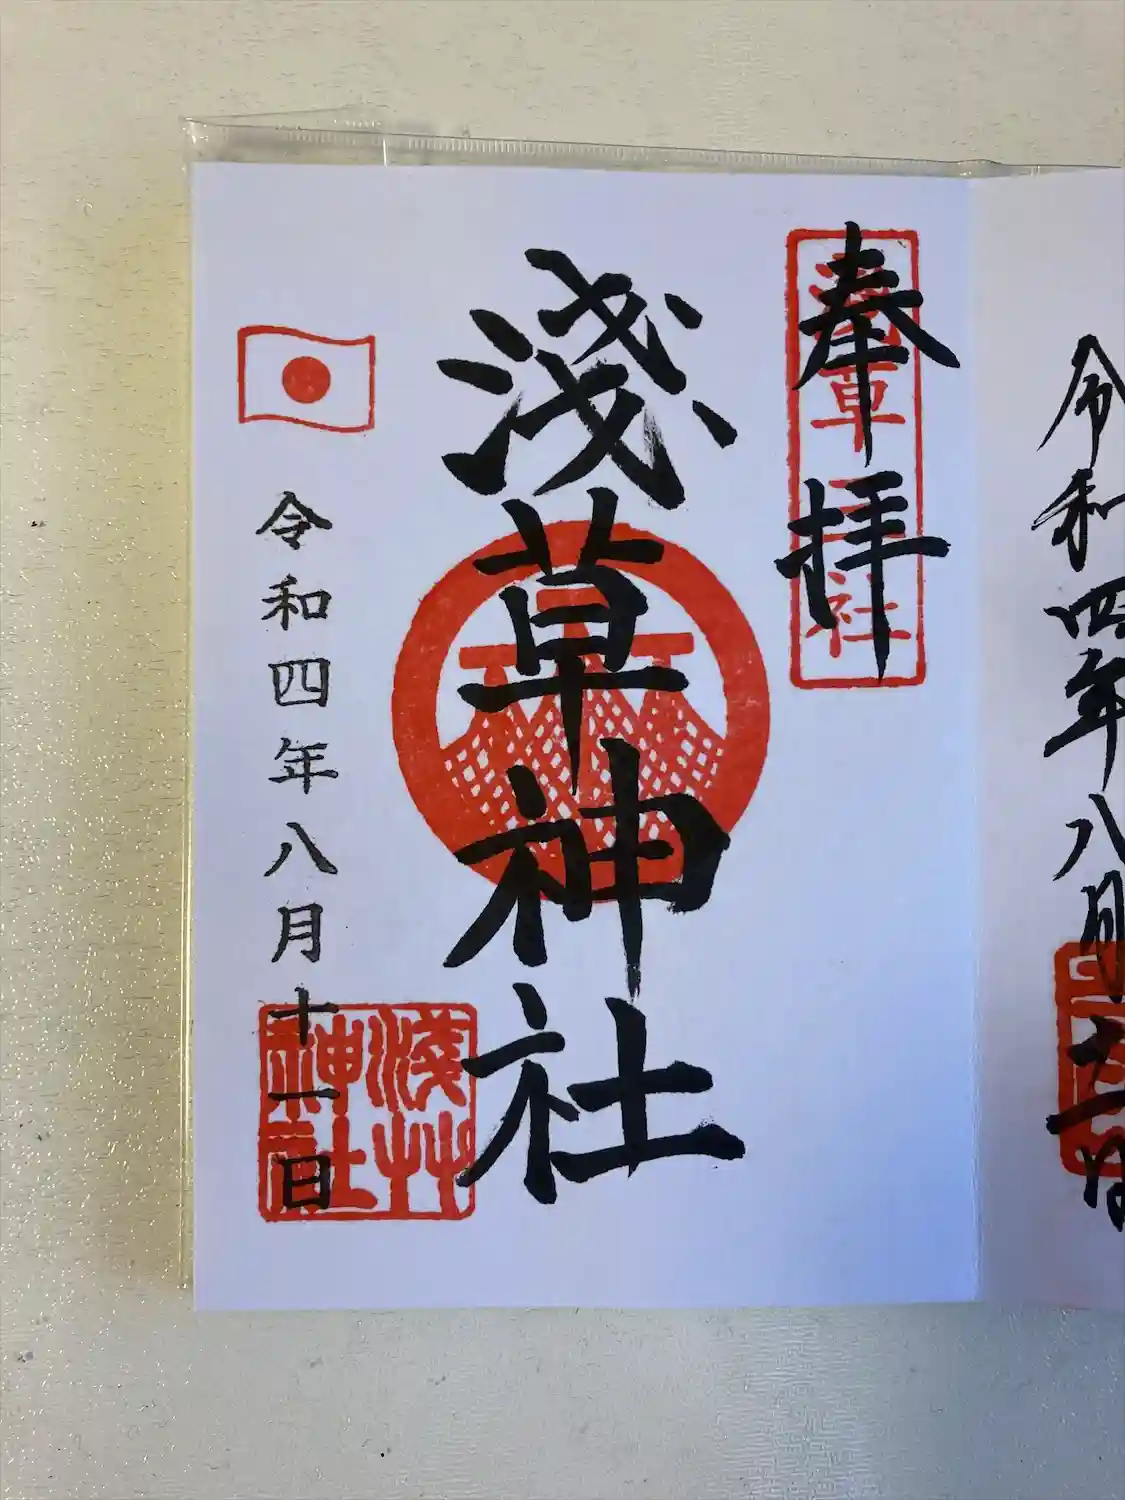 奉拝
淺草神社
令和四年八月十一日
淺草神社
令和四年八月